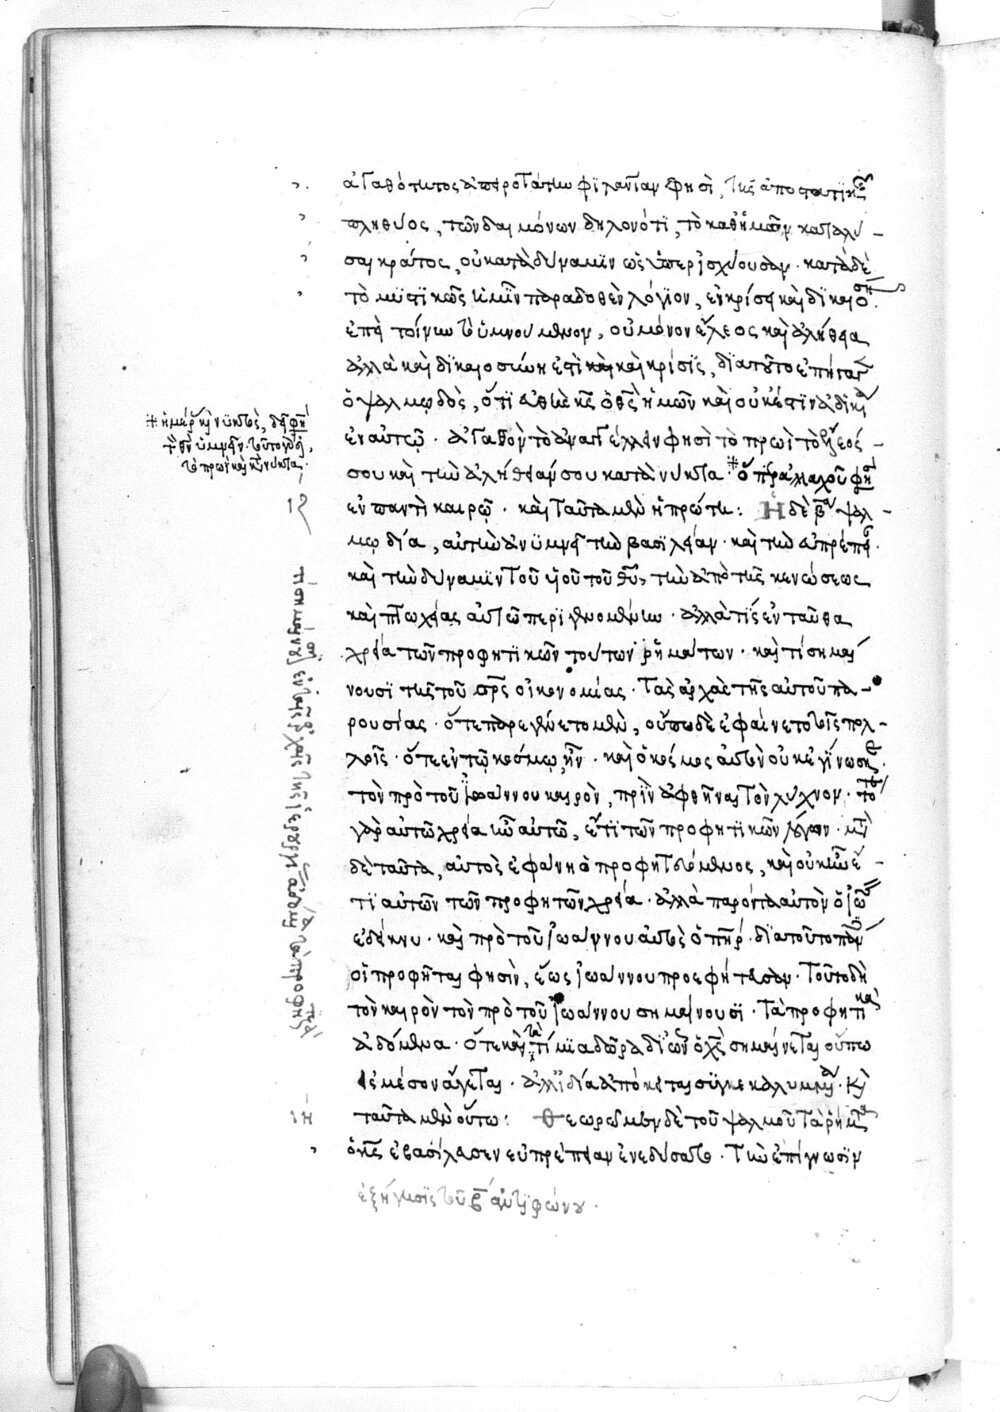 ἀγαθότητος ἀπειροτάτην φιλανίαν φησὶ, τῆς ἀποστατικῆς
πληθύος, τῶν δαιμόνων δηλονότι, τὸ καθ' ἡμῶν καταλῦ-
σαι κράτος, οὐ κατὰ δύναμιν ὡς ὑπερισχύουσαν· κατὰ δὲ
τὸ μυστικῶς ἡμῖν παραδοθὲν λόγιον, ἐν κρίσει καὶ δικαιοσύνῃ.
ἐπεὶ τοίνυν τὸ ὑμνούμενον, οὐ μόνον ἔλεος καὶ ἀλήθεια
ἀλλὰ καὶ δικαιοσύνη ἐστὶ καὶ κρίσις, διατοῦτο ἐπήγαγεν
ὁ ψαλμῳδὸς, ὅτι εὐθὴς κς ὁ θς ἡμῶν καὶ οὐκ ἔστιν ἀδικία
ἐν αὐτῷ· ἀγαθὸν τὸ ἀναγγέλλειν φησὶ τὸ πρωὶ τὸ ἔλεός
σου καὶ τὴν ἀλήθειάν σου κατὰ νύκτα· ὅπερ ἀλλαχοῦ φησιν
ἐν παντὶ καιρῷ· καὶ ταῦτα μὲν ἡ πρώτη: Ἡ δὲ βα ψαλ
μῳδία, αὐτὴν ἀνυμνεῖ τὴν βασιλείαν· καὶ τὴν εὐπρέπειαν·
καὶ τὴν δύναμιν τοῦ υἱοῦ τοῦ θυ, τὴν ἀπὸ τῆς κενώσεως
καὶ πτωχείας αὐτῶ περιγινομένην· ἀλλὰ τίς ἐνταῦθα
χρεία τῶν προφητικῶν τούτων ῥημάτων· καὶ τί σημαί
νουσι τῆς τοῦ σρς οἰκονομίας· Τὰς ἀρχὰς τῆς αὐτοῦ πα-
ρουσίας· ὅτε παρεγένετο μὲν, οὔπω δὲ ἐφαίνετο τοῖς πολ-
λοῖς· ὅτε ἐν τῷ κόσμῳ ἦν· καὶ ὁ κόσμος αὐτὸν οὐκ ἐγίνωσκε·
τὸν πρὸ τοῦ Ἰωάννου καιρὸν, πρὶν ἀφθῆναι τὸν λύχνον· τότε
γὰρ αὐτῶ χρεία ἦν αὐτῶ, ἔτι τῶν προφητικῶν λόγων· μετὰ
δὲ ταῦτα, αὐτὸς ἐφαίνη ὁ προφητευόμενος, καὶ οὐκ ἦν ἔ-
τι αὐτῶν τῶν προφητῶν χρεία· ἀλλὰ παρόντα αὐτὸν ὁ ἰω
ἐδείκνυ· καὶ πρὸ τοῦ Ἰωάννου αὐτὸς ὁ πηρ· διατοῦτο πάντες
οἱ προφῆται φησὶν, ἕως ἰωάννου προεφήτευσαν· Τοῦτο δὴ
τὸν καιρὸν τὸν πρὸ τοῦ ἰωάννου σημαίνουσι· Τὰ προφητικὰ
ἀδόμενα· ὅτε καὶ τὰ τίμια δῶρα δι' ὧν ὁ χς σημαίνεται οὔπω
εἰς μέσον ἄγεται· ἀλλ' ἰδία ἀπόκειται συγκεκαλυμμένα· καὶ
ταῦτα μὲν οὕτω: Θεωροῦμεν δὲ τοῦ ψαλμοῦ τὰ ῥήματα
ὁ κς ἐβασίλευσεν εὐπρέπειαν ἐνεδύσατο· Τὴν ἐπίγνωσιν
ἐξήγησις τοῦ β ἀντιφώνου·
ἡμέρας καὶ νύκτὸς, δεῖ φησι
τὸ θν ὑμνεῖν· τοῦτο γὰρ δηλοῖ,
τὸ πρωὶ καὶ τὴν νύκτα·
ιζ
ιη